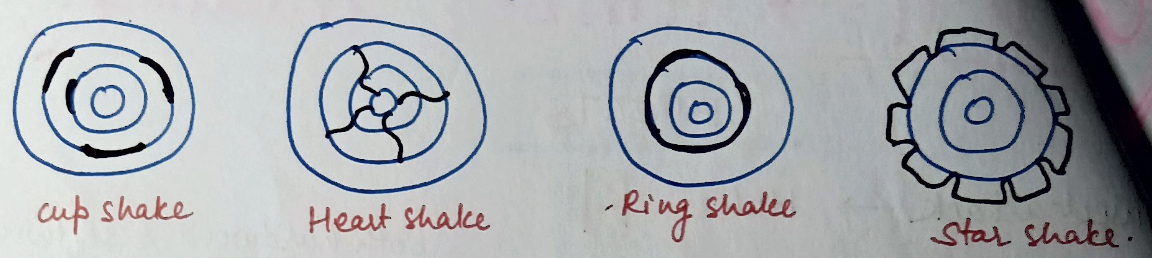 cup shake
Heart shake
Ring shake
Star shake.